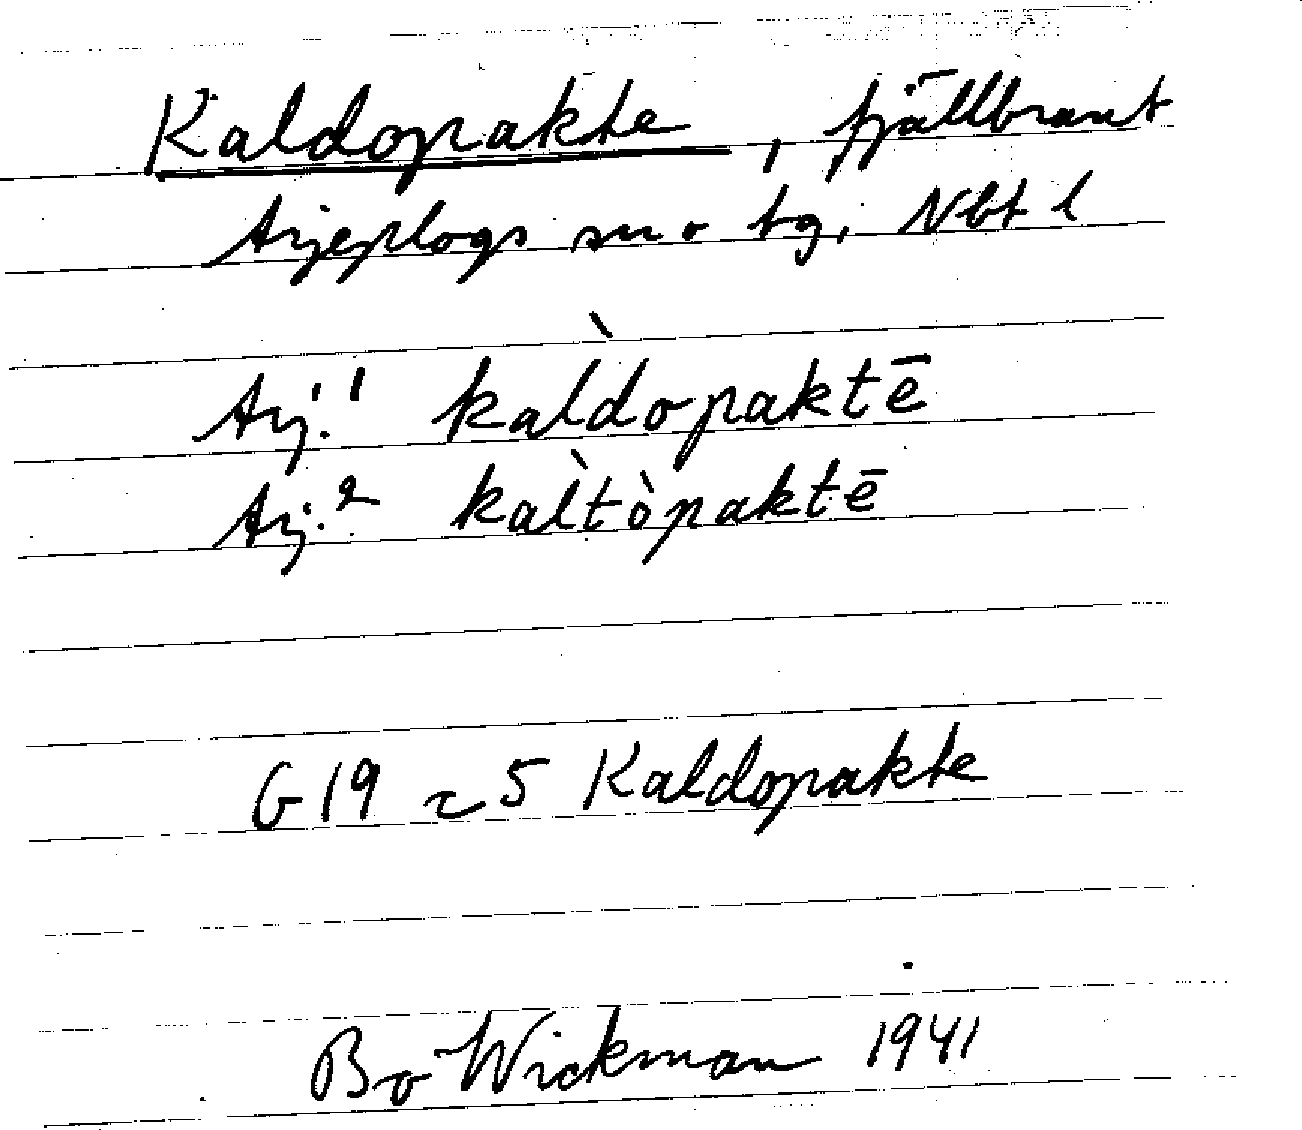 Kaldopakte, fjällbrant
Arjeplogs sn o tg, Nbt l
Arj.¹ kal̀dopaktē
Arj.² kal̀tòpaktē
G19 ~ 5 Kaldopakte
Bo Wickman 1941